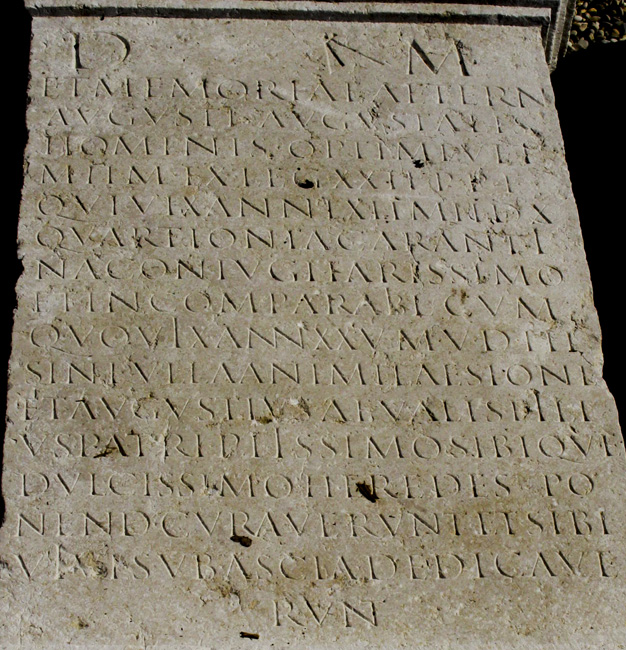 D M
ET MEMORIAE AETERN
AVGVSTI AVGVSTALIS
HOMENIS OPTIMI VET
LEG XXII P P F
QVI VIX ANN LXII M II D X
QVARTIONIA CARANTI
NA CONIVGI KARISSIMO
ET INCOMPARABI CVM
QVO VIX ANN XXV M V D III
SINE VLLA ANIMI LAESIONE
ET AVGVSTIVS ABVALIS FILI
VS PATRI PIISSIMO SIBIQVE
DVLCISSIMO HEREDES PO
NEND CVRAVERVNT ET SIBI
VIVI SVB ASCIA DEDICAVE
RVN